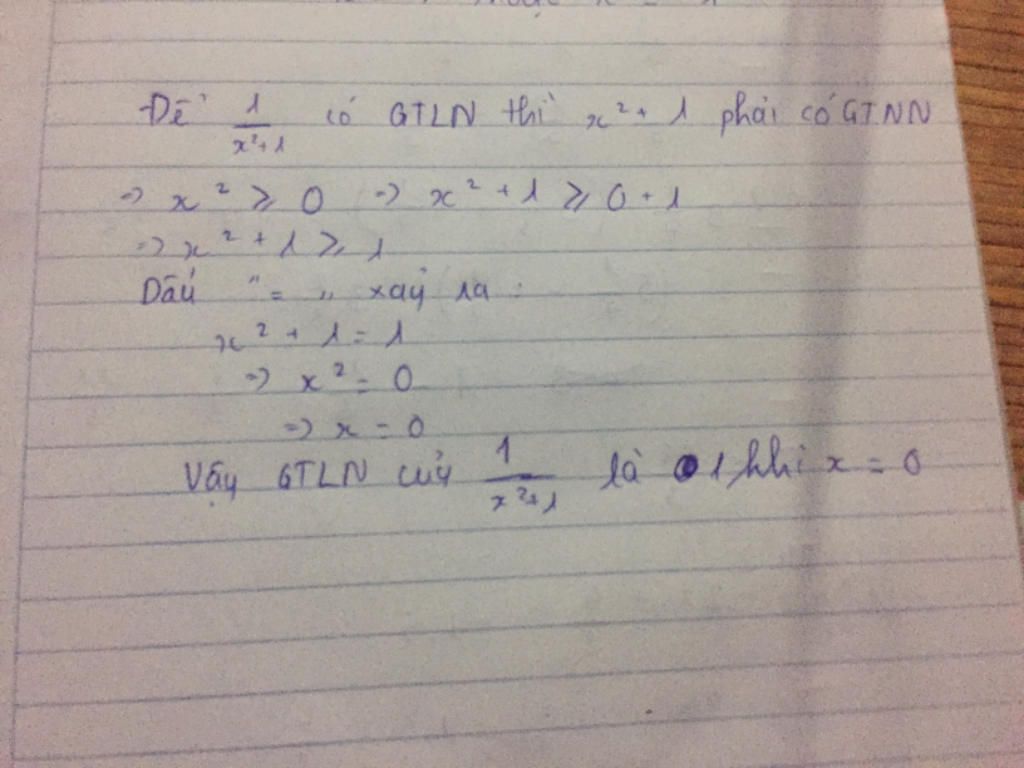 Để 1/(x²+1) có GTLN thì x² + 1 phải có GTNN
=> x² ≥ 0 => x² + 1 ≥ 0 + 1
=> x² + 1 ≥ 1
Dấu "=" xảy ra :
x² + 1 = 1
=> x² = 0
=> x = 0
Vậy GTLN của 1/(x²+1) là 1 khi x = 0